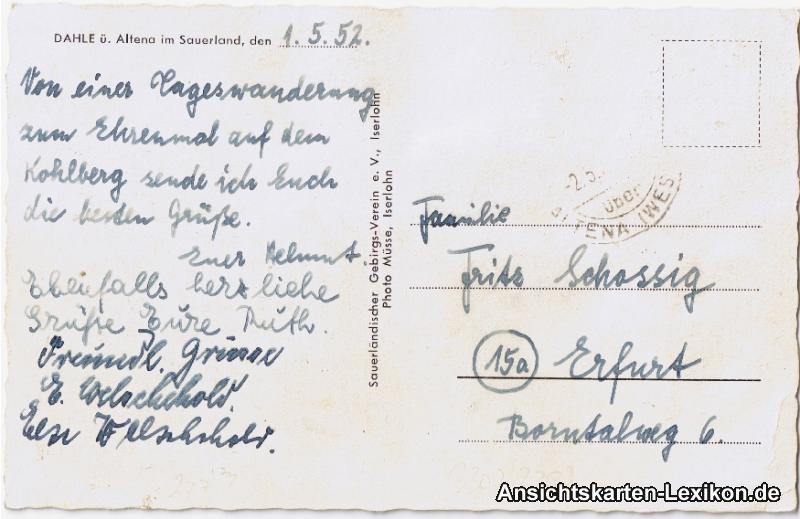 DAHLE ü. Altena im Sauerland, den 1.5.52.
Von einer Tageswanderung
zum Ehrenmal auf dem
Kohlberg sende ich Euch
die besten Grüße.
Euer Helmut.
Ebenfalls herzliche
Grüße Eure Ruth.
Freundl. Grüsse
E. Welschehold.
Else Welschehold.
Sauerländischer Gebirgs-Verein e. V., Iserlohn
Photo Müsse, Iserlohn
-2.5.
über
ALTENA (WES
Familie
Fritz Schossig
15a Erfurt
Borntalweg 6.
Ansichtskarten-Lexikon.de